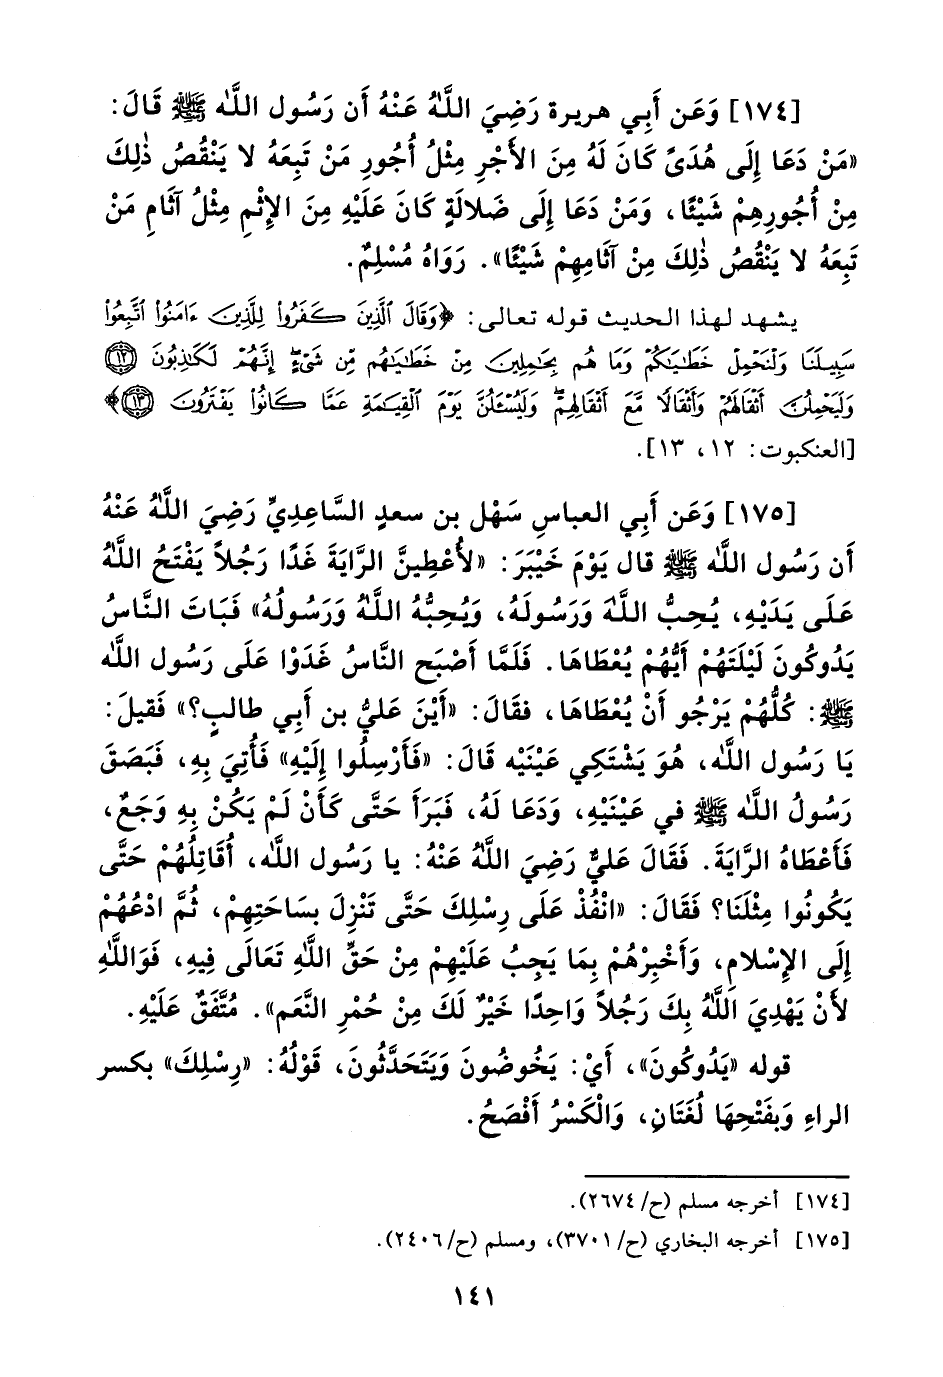 [١٧٤] وَعَن أَبِي هريرة رَضِيَ اللَّهُ عَنْهُ أن رَسُول اللَّه ﷺ قَالَ:
«مَنْ دَعَا إِلَى هُدَىً كَانَ لَهُ مِنَ الأَجْرِ مِثْلُ أُجُورِ مَنْ تَبِعَهُ لا يَنْقُصُ ذٰلِكَ
مِنْ أُجُورِهِمْ شَيْئًا، وَمَنْ دَعَا إِلَى ضَلالَةٍ كَانَ عَلَيْهِ مِنَ الإِثْمِ مِثْلُ آثَامِ مَنْ
تَبِعَهُ لا يَنْقُصُ ذٰلِكَ مِنْ آثَامِهِمْ شَيْئًا». رَوَاهُ مُسْلِمٌ.
يشهد لهذا الحديث قوله تعالى: ﴿وَقَالَ ٱلَّذِينَ كَفَرُواْ لِلَّذِينَ ءَامَنُواْ ٱتَّبِعُواْ
سَبِيلَنَا وَلْنَحْمِلْ خَطَٰيَٰكُمْ وَمَا هُم بِحَٰمِلِينَ مِنْ خَطَٰيَٰهُم مِّن شَىْءٍ إِنَّهُمْ لَكَٰذِبُونَ ١٢
وَلَيَحْمِلُنَّ أَثْقَالَهُمْ وَأَثْقَالًا مَّعَ أَثْقَالِهِمْ وَلَيُسْـَٔلُنَّ يَوْمَ ٱلْقِيَٰمَةِ عَمَّا كَانُواْ يَفْتَرُونَ ١٣﴾
[العنكبوت: ١٢، ١٣].
[١٧٥] وَعَن أَبِي العباسِ سَهْل بن سعدٍ السَّاعِدِيِّ رَضِيَ اللَّهُ عَنْهُ
أن رَسُول اللَّه ﷺ قال يَوْمَ خَيْبَرَ: «لأُعْطِينَّ الرَّايَةَ غَدًا رَجُلاً يَفْتَحُ اللَّهُ
عَلَى يَدَيْهِ، يُحِبُّ اللَّهَ وَرَسُولَهُ، وَيُحِبُّهُ اللَّهُ وَرَسُولُهُ» فَبَاتَ النَّاسُ
يَدُوكُونَ لَيْلَتَهُمْ أَيُّهُمْ يُعْطَاهَا. فَلَمَّا أَصْبَحَ النَّاسُ غَدَوْا عَلَى رَسُول اللَّه
ﷺ: كُلُّهُمْ يَرْجُو أَنْ يُعْطَاهَا، فقَالَ: «أَيْنَ عَلِيُّ بن أَبِي طالبٍ؟» فَقيلَ:
يَا رَسُول اللَّه، هُوَ يَشْتَكِي عَيْنَيْه قَالَ: «فَأَرْسِلُوا إِلَيْهِ» فَأُتِيَ بِهِ، فَبَصَقَ
رَسُولُ اللَّه ﷺ في عَيْنَيْهِ، وَدَعَا لَهُ، فَبَرَأَ حَتَّى كَأَنْ لَمْ يَكُنْ بِهِ وَجَعٌ،
فَأَعْطَاهُ الرَّايَةَ. فَقَالَ عَليٌّ رَضِيَ اللَّهُ عَنْهُ: يا رَسُول اللَّه، أُقَاتِلُهُمْ حَتَّى
يَكُونُوا مِثْلَنَا؟ فَقَالَ: «انْفُذْ عَلَى رِسْلِكَ حَتَّى تَنْزِلَ بسَاحَتِهِمْ، ثُمَّ ادْعُهُمْ
إِلَى الإِسْلامِ، وَأَخْبِرْهُمْ بِمَا يَجِبُ عَلَيْهِمْ مِنْ حَقِّ اللَّهِ تَعَالَى فِيهِ، فَوَاللَّهِ
لأَنْ يَهْدِيَ اللَّهُ بِكَ رَجُلاً وَاحِدًا خَيْرٌ لَكَ مِنْ حُمْرِ النَّعَم». مُتَّفَقٌ عَلَيْهِ.
قوله «يَدُوكُونَ»، أَيْ: يَخُوضُونَ وَيَتَحَدَّثُونَ، قَوْلُهُ: «رِسْلِكَ» بكسر
الراءِ وَبفَتْحِهَا لُغَتَانِ، وَالْكَسْرُ أَفْصَحُ.
[١٧٤] أخرجه مسلم (ح/ ٢٦٧٤).
[١٧٥] أخرجه البخاري (ح/ ٣٧٠١)، ومسلم (ح/ ٢٤٠٦).
١٤١